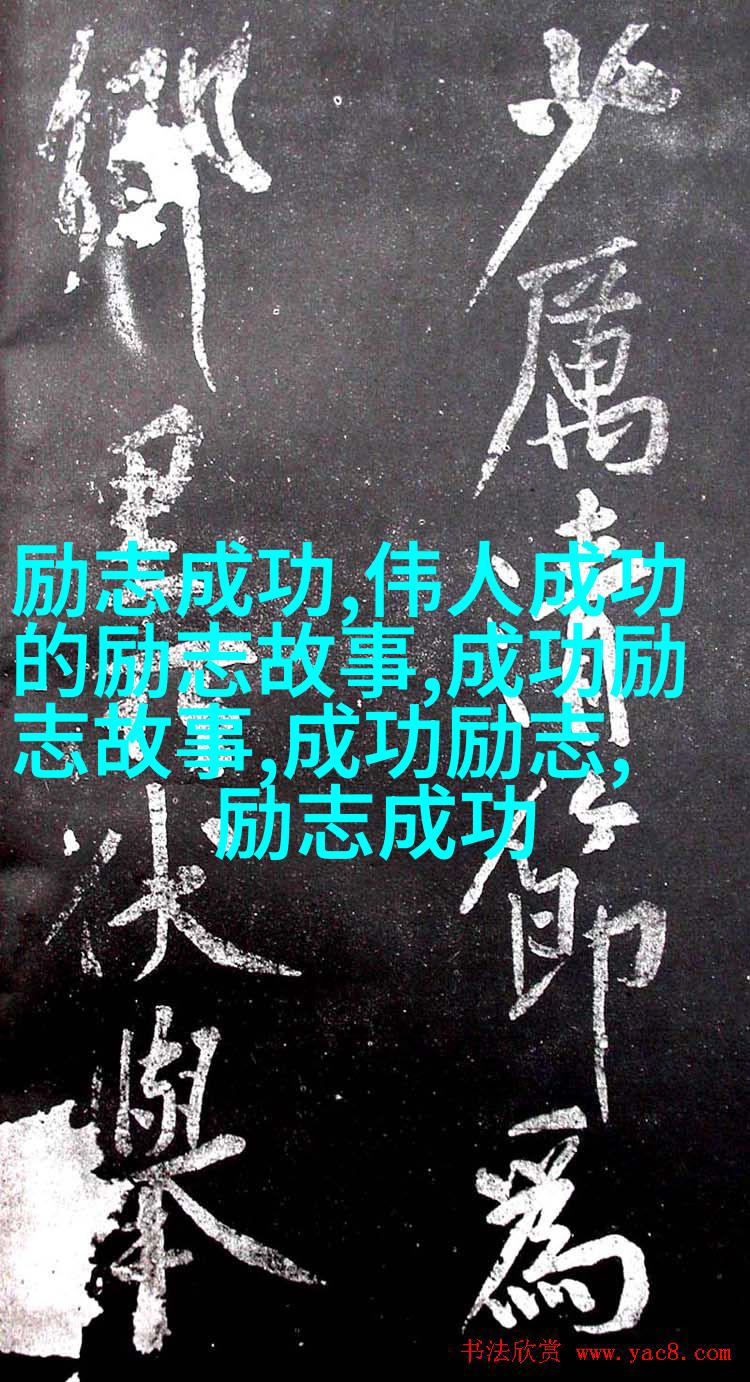 少厲清節為
鄉里伏舉
励志成功,伟人成功
的励志故事,成功励
志故事,成功励志,
励志成功
书法欣赏 www.yac8.com